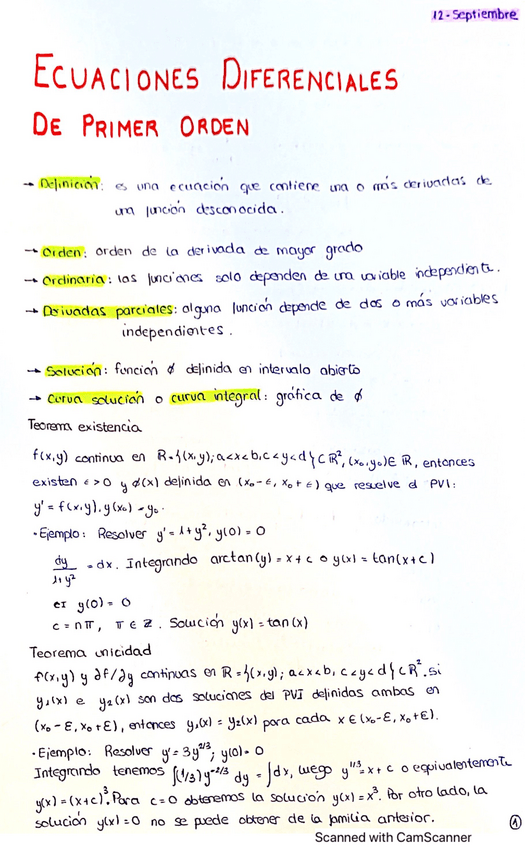 12-Septiembre
ECUACIONES DIFERENCIALES
DE PRIMER ORDEN
→ Definición: es una ecuación que contiene una o más derivadas de
una función desconocida.
→ Orden: orden de la derivada de mayor grado
→ Ordinaria: las funciones solo dependen de una variable independiente.
→ Derivadas parciales: alguna función depende de dos o más variables
independientes.
→ Solución: función ϕ definida en intervalo abierto
→ Curva solución o curva integral: gráfica de ϕ
Teorema existencia
f(x,y) continua en R={(x,y); a<x<b, c<y<d} ⊂ ℝ², (x₀,y₀) ∈ ℝ, entonces
existen ε>0 y ϕ(x) definida en (x₀-ε, x₀+ε) que resuelve el PVI:
y' = f(x,y), y(x₀) = y₀.
· Ejemplo: Resolver y' = 1+y², y(0) = 0
dy/1+y² = dx. Integrando arctan(y) = x+c o y(x) = tan(x+c)
y(0) = 0
c = nπ, π ∈ Z. Solución y(x) = tan(x)
Teorema unicidad
f(x,y) y ∂f/∂y continuas en R = {(x,y); a<x<b, c<y<d} ⊂ ℝ². si
y₁(x) e y₂(x) son dos soluciones del PVI definidas ambas en
(x₀-ε, x₀+ε), entonces y₁(x) = y₂(x) para cada x ∈ (x₀-ε, x₀+ε).
· Ejemplo: Resolver y' = 3y^2/3; y(0) = 0
Integrando tenemos ∫(1/3)y^-2/3 dy = ∫dx, luego y^1/3 = x+c o equivalentemente
y(x) = (x+c)³. Para c=0 obtenemos la solución y(x) = x³. Por otro lado, la
solución y(x)=0 no se puede obtener de la familia anterior.
1
Scanned with CamScanner